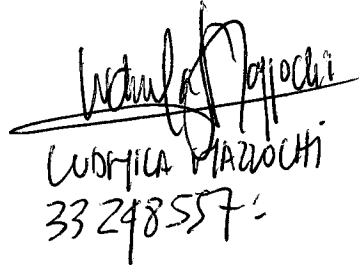 Ludmila Mazzochi
LUDMILA MAZZOCHI
33248557.-